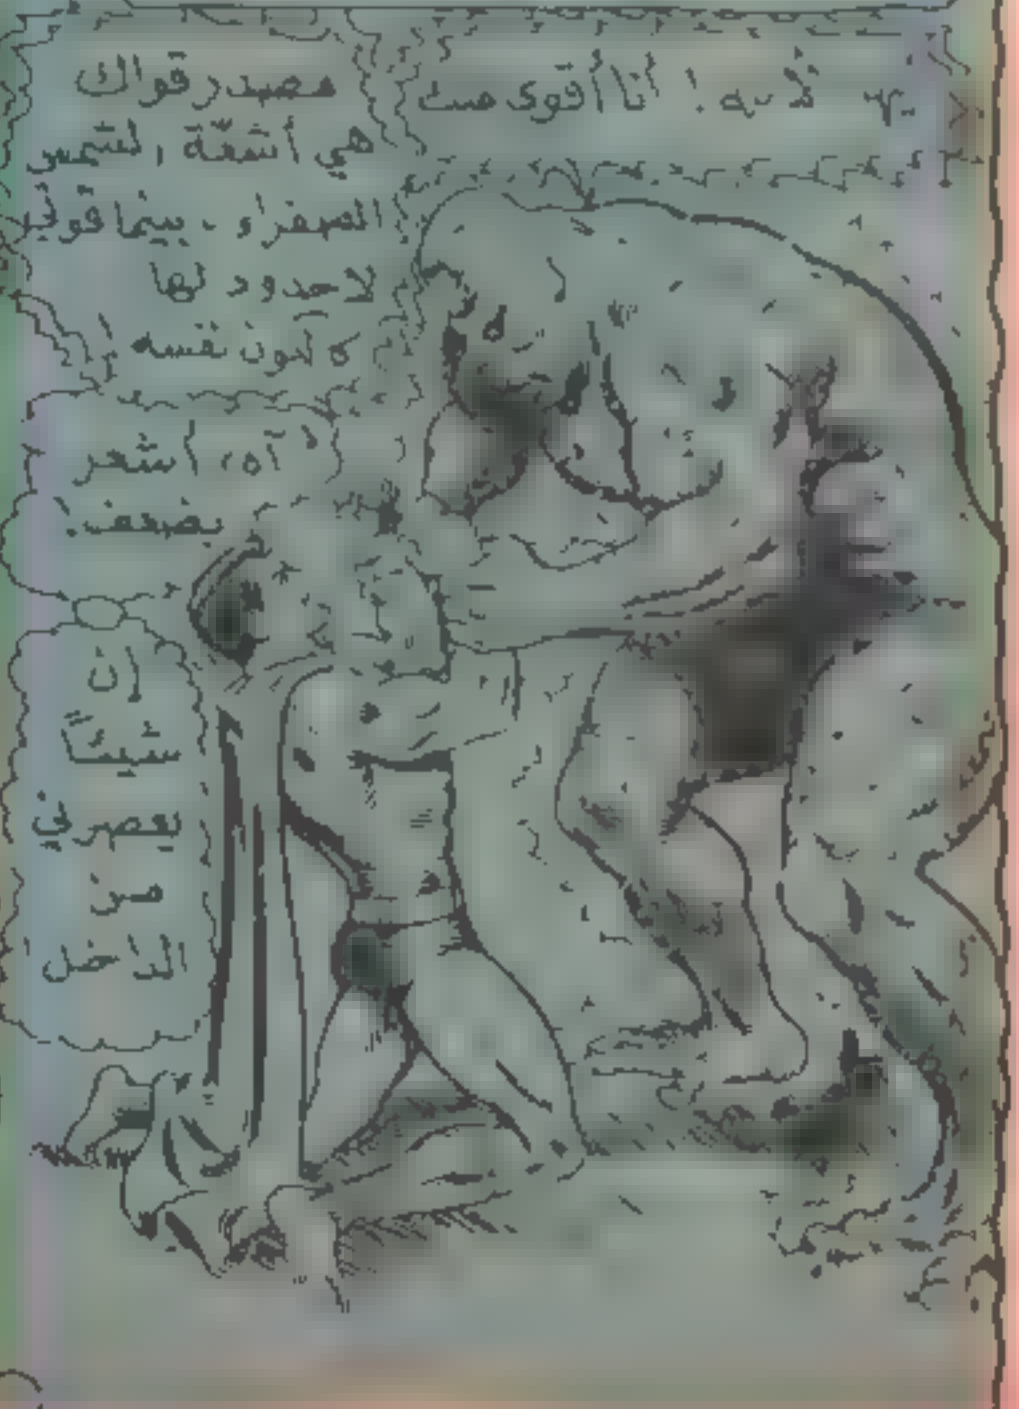 أنا أقوى منك
مصدر قواك
هي أشعّة الشمس
الصفراء، بينما قوتي
لا حدود لها
آه، أشعر
بضعف!
إن
شيئًا
يعصرني
من
الداخل!